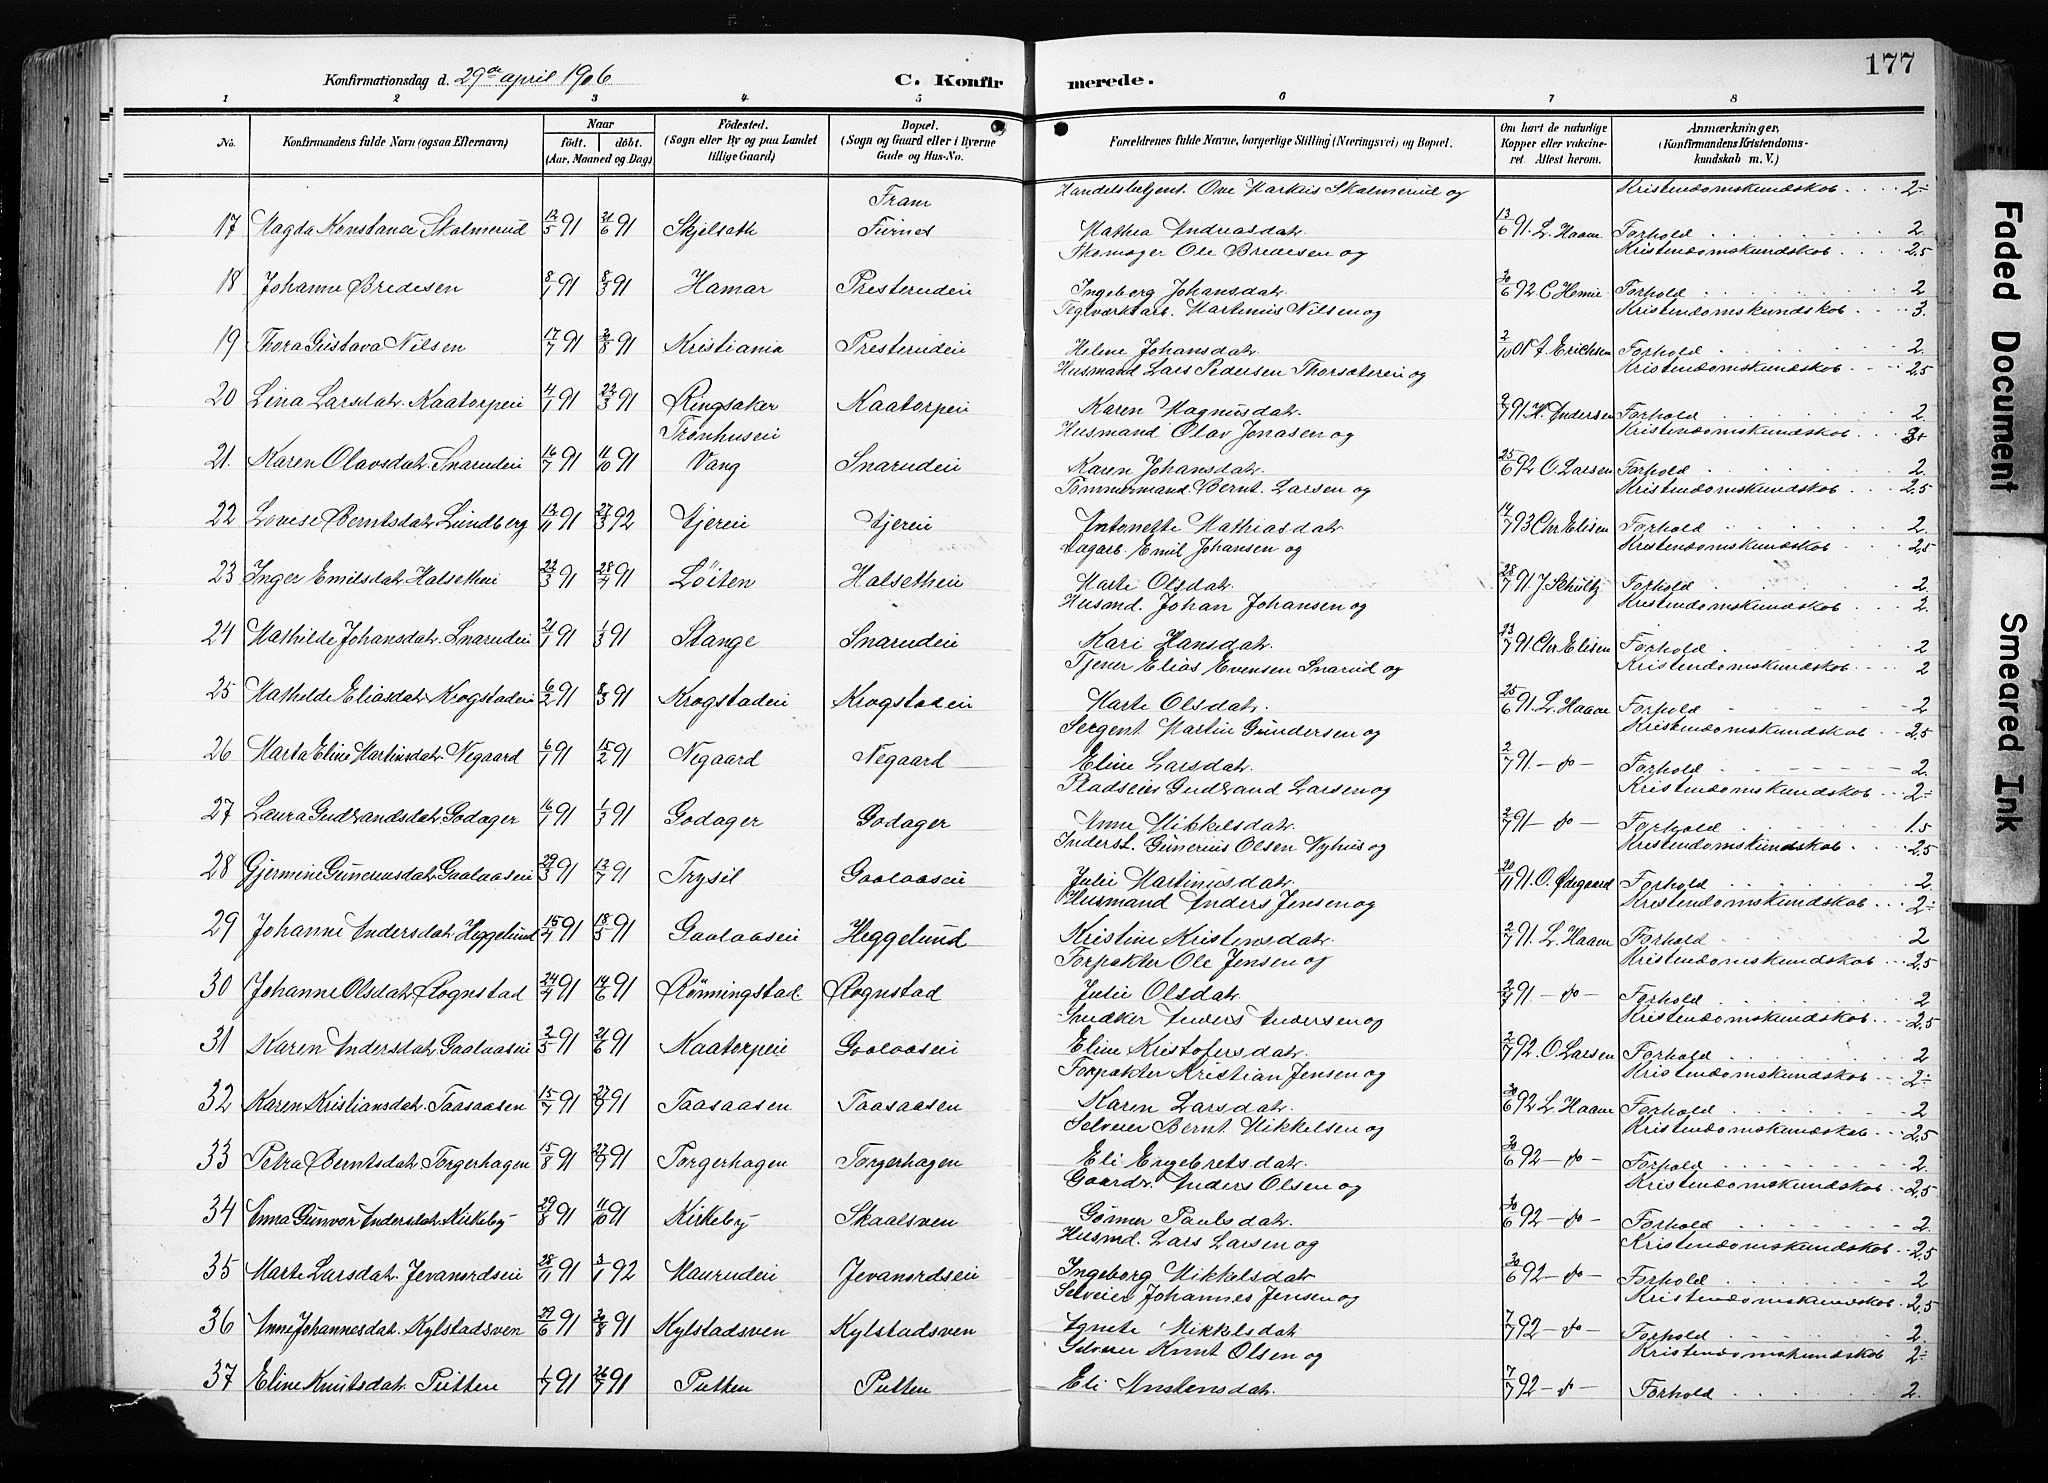 177
Konfirmationsdag d. 29de april 1906
C. Konfirmerede.
1 2 3 4 5 6 7 8
No. Konfirmandens fulde Navn (ogsaa Efternavn) Naar født. døbt. (Aar, Maaned og Dag) Fødested. (Sogn eller By og paa Landet tillige Gaard) Bopæl. (Sogn og Gaard eller i Byerne Gade og Hus-No. Forældrenes fulde Navne, borgerlige Stilling (Næringsvei) og Bopæl. Om havt de naturlige Kopper eller vaccineret. Attest herom. Anmærkninger, (Konfirmandens Kristendomskundskab m. V.)
Fram Handelsbetjent. Ove Markus Skalmerud og Kristendomskundskab 2-
17 Magda Konstance Skalmerud 12/5 91 21/6 91 Skjelseth Furnes Mathea Andreasdatr. 13/6 91. L. Haave Forhold 2
Skomager Ole Bredesen og Kristendomskundskab 2,5
18 Johanne Bredesen 8/1 91 8/3 91 Hamar Presterudeie Ingeborg Johansdatr. 30/6 92 Forhold 2
Teglværksarb. Martinius Nilsen og Kristendomskundskab 3
19 Thora Gustava Nilsen 17/7 91 30/8 91 Kristiania Presterudeie Helene Johansdatr. 2/10 01 A. Erichsen Forhold 2
Husmand Lars Pedersen Thorsætereie og Kristendomskundskab 2,5
20 Lina Larsdatr. Kaatorpeie 4/1 91 22/3 91 Ringsaker Kaatorpeie Karen Magnusdatr. 2/7 91. H. Andersen Forhold 2
Tronhuseie Husmand Olav Jonasen og Kristendomskundskab
21. Karen Olavsdatr. Snarudeie 16/7 91 11/10 91 Vang Snarudeie Karen Johansdatr. 25/6 92 O. Larsen Forhold 2
Tømmermand. Bernt. Larsen og Kristendomskundskab 2,5
22 Lovise Berntsdatr. Lundberg 13/11 91 27/3 92 Ajereie Ajereie Antonette Mathiasdatr. 14/7 93 Chr Elisen Forhold 2
Dagarb. Emil Johansen og Kristendomskundskab 2,5
23 Inger Emilsdatr. Halsetheie 22/3 91 28/4 91 Løiten Halsetheie Marte Olsdatr. 28/7 91. J. Schultz Forhold 2
Husmd. Johan Johansen og Kristendomskundskab 2.
24 Mathilde Johansdatr. Snarudeie 21/1 91 1/3 91 Stange Snarudeie Kari Hansdatr. 23/7 91 Chr Elisen Forhold 2
Tjener Elias Evensen Snarud og Kristendomskundskab 2
25 Mathilde Eliasdatr. Krogstadeie 6/2 91 8/3 91 Krogstadeie Krogstadeie Marte Olsdatr. 25/6 91. L. Haave Forhold 2
Sergent. Martin Gundersen og Kristendomskundskab 2,5
26 Marta Eline Martinsdatr. Negaard 6/1 91 15/2 91 Negaard Negaard Eline Larsdatr. 2/7 91. - do - Forhold 2.
Pladseier Gudbrand Larsen og Kristendomskundskab 2-
27 Laura Gudbrandsdatr. Godager 16/1 91 1/3 91 Godager Godager Anne Mikkelsdatr. 2/7 91 - do - Forhold 1.5
Inderst. Gunerius Olsen Nyhus og Kristendomskundskab 2,5
28 Gjermine Guneriusdatr. Gaalaaseie 29/3 91 12/7 91 Trysil Gaalaaseie Julie Martinusdatr. 20/11 91. O. Ødegaard Forhold 2.
Husmand Anders Jensen og Kristendomskundskab 2-
29 Johanne Andersdatr. Heggelund 15/4 91 18/5 91 Gaalaaseie Heggelund Kristine Kristensdatr. 2/7 91. L. Haave Forhold 2
Forpakter Ole Jensen og Kristendomskundskab 2,5
30 Johanne Olsdatr. Rognstad 24/4 91 14/6 91 Rønningstad Rognstad Julie Olsdatr. 2/7 91 - do - Forhold 2
Snedker Anders Andersen og Kristendomskundskab 2,5
31 Karen Andersdatr. Gaalaaseie 2/5 91 21/6 91 Kaatorpeie Gaalaaseie Eline Kristofersdatr. 2/7 92. O. Larsen Forhold 2
Forpakter Kristian Jensen og Kristendomskundskab 2-
32 Karen Kristiansdatr. Taasaasen 15/7 91 27/9 91 Taasaasen Taasaasen Karen Larsdatr. 30/6 92 L. Haave Forhold 2
Selveier Bernt Mikkelsen og Kristendomskundskab 2,5
33 Petra Berntsdatr. Torgerhagen 15/8 91 27/9 91 Torgerhagen Torgerhagen Eli Engebretsdatr. 30/6 92 - do - Forhold 2.
Gaardr. Anders Olsen og Kristendomskundskab 2,5
34 Anna Gunvor Andersdatr. Kirkeby 29/8 91 11/10 91 Kirkeby Skaalsven Gunner Paulsdatr. 30/6 92 - do - Forhold 2.
Husmd. Lars Larsen og Kristendomskundskab 2,5
35 Marte Larsdatr. Jevanordseie 28/11 91 3/1 92 Maurudeie Jevanordseie Ingeborg Mikkelsdatr. 30/6 92 - do - Forhold 2
Selveier Johannes Jensen og Kristendomskundskab 2,5
36 Anne Johannesdatr. Kylstadsven 29/6 91 30/8 91 Kylstadsven Kylstadsven Agnete Mikkelsdatr 7/7 92 - do - Forhold 2.
Selveier Knut Olsen og Kristendomskundskab 2-
37 Eline Knutsdatr. Putten 1/7 91 26/7 91 Putten Putten Eli Anstensdatr. 7/7 92 - do - Forhold 2.
Faded Document
Smeared Ink